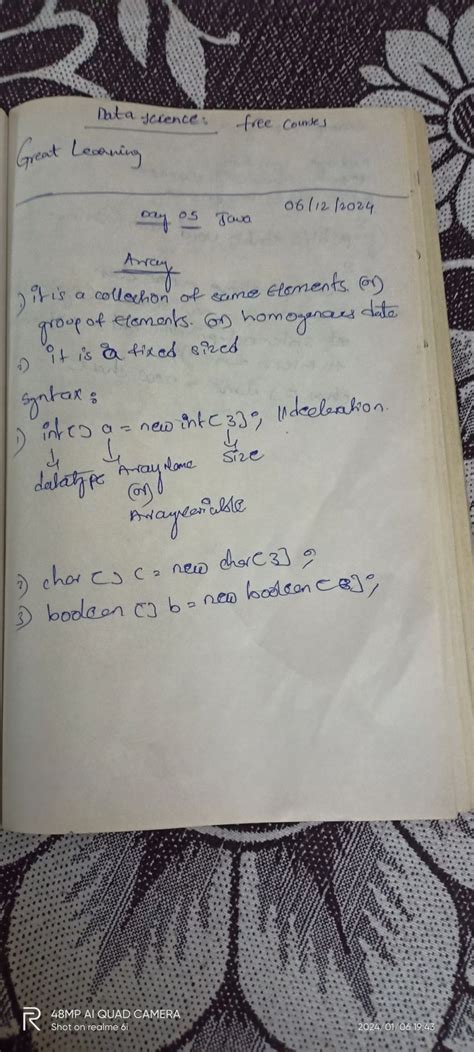 Data science: free courses
Great Learning
Day 05 Java 06/12/2024
Array
1) it is a collection of same elements. (or)
group of elements. (or) homogenous data
2) it is a fixed sized
Syntax:
1) int[] a = new int[3]; // decleration.
datatype Array Name Size
(or)
Array variable
2) char [] c = new char[3];
3) boolean [] b = new boolean [3];
R 48MP AI QUAD CAMERA
Shot on realme 6i 2024/01/06 19:43